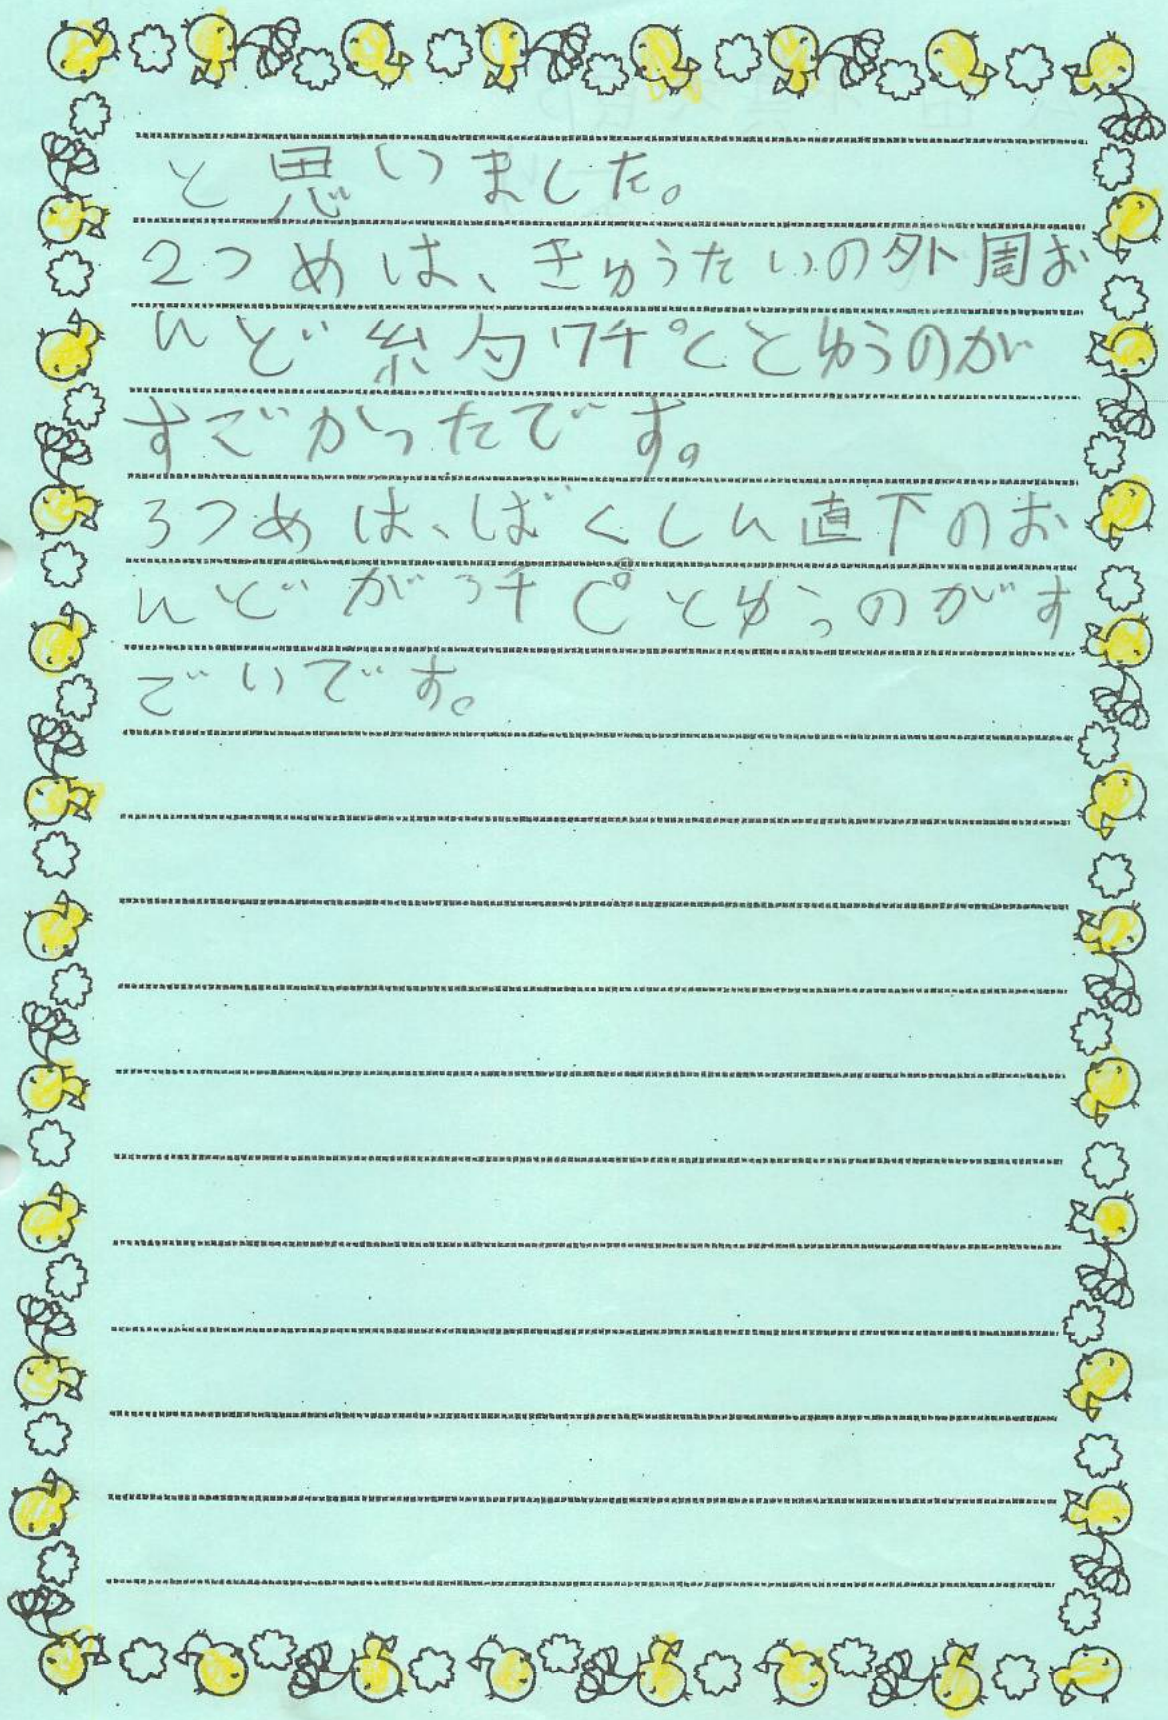 と思いました。
2つめは、きゅうたいの外周お
んど約7千℃とゆうのが
すごかったです。
3つめは、ばくしん直下のお
んどが3千℃とゆうのがす
ごいです。